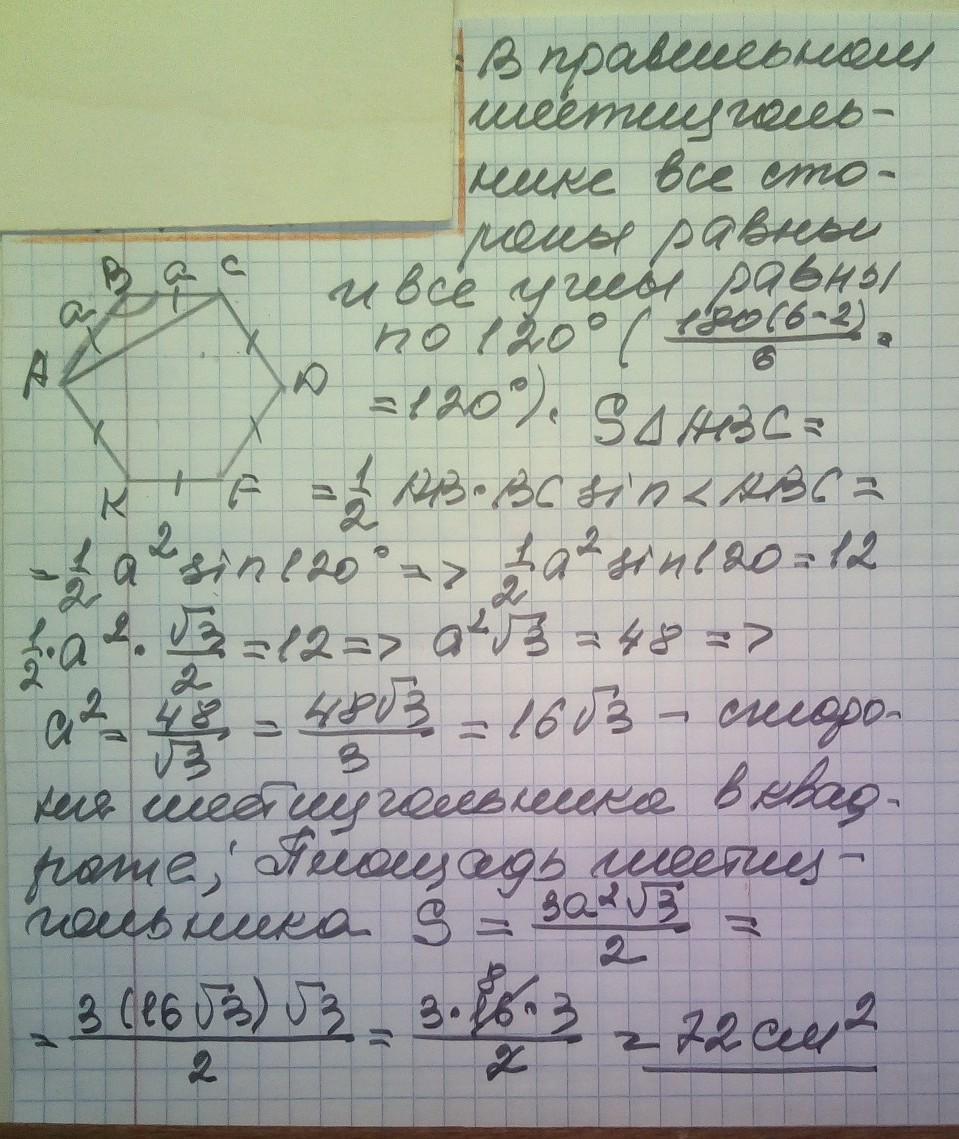 В правильном
шестиуголь-
нике все сто-
роны равны
и все углы равны
по 120° ( 180(6-2)/6 =
= 120°). S△ABC =
B a C
a
A D
K F
= 1/2 AB·BC sin<ABC =
= 1/2 a² sin120° => 1/2 a² sin120 = 12
1/2·a²·√3/2 = 12 => a²√3 = 48 =>
a² = 48/√3 = 48√3/3 = 16√3 - сторо-
на шестиугольника в квад-
рате; Площадь шестиу-
гольника S = 3a²√3/2 =
= 3(16√3)√3/2 = 3·16·3/2 = 72 см²
8